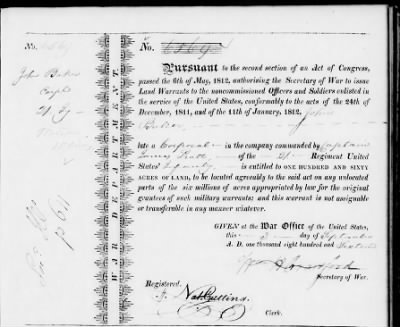 No.
John Baker
Corpl
21
WAR DEPARTMENT.
No. 6869
Pursuant to the second section of an Act of Congress,
passed the 6th of May, 1812, authorising the Secretary of War to issue
Land Warrants to the noncommissioned Officers and Soldiers enlisted
in the service of the United States, conformably to the acts of the 24th of
December, 1811, and of the 11th of January, 1812, John
Baker
late a Corporal in the company commanded by Captain
Pratt of the 21 Regiment United
States' Infantry is entitled to ONE HUNDRED AND SIXTY
ACRES OF LAND, to be located agreeably to the said act on any unlocated
parts of the six millions of acres appropriated by law for the original
grantees of such military warrants; and this warrant is not assignable
or transferrible in any manner whatever.
GIVEN at the War Office of the United States,
this day of September
A. D. one thousand eight hundred and Sixteen
Wm H Crawford
Secretary of War.
Registered.
Clerk.